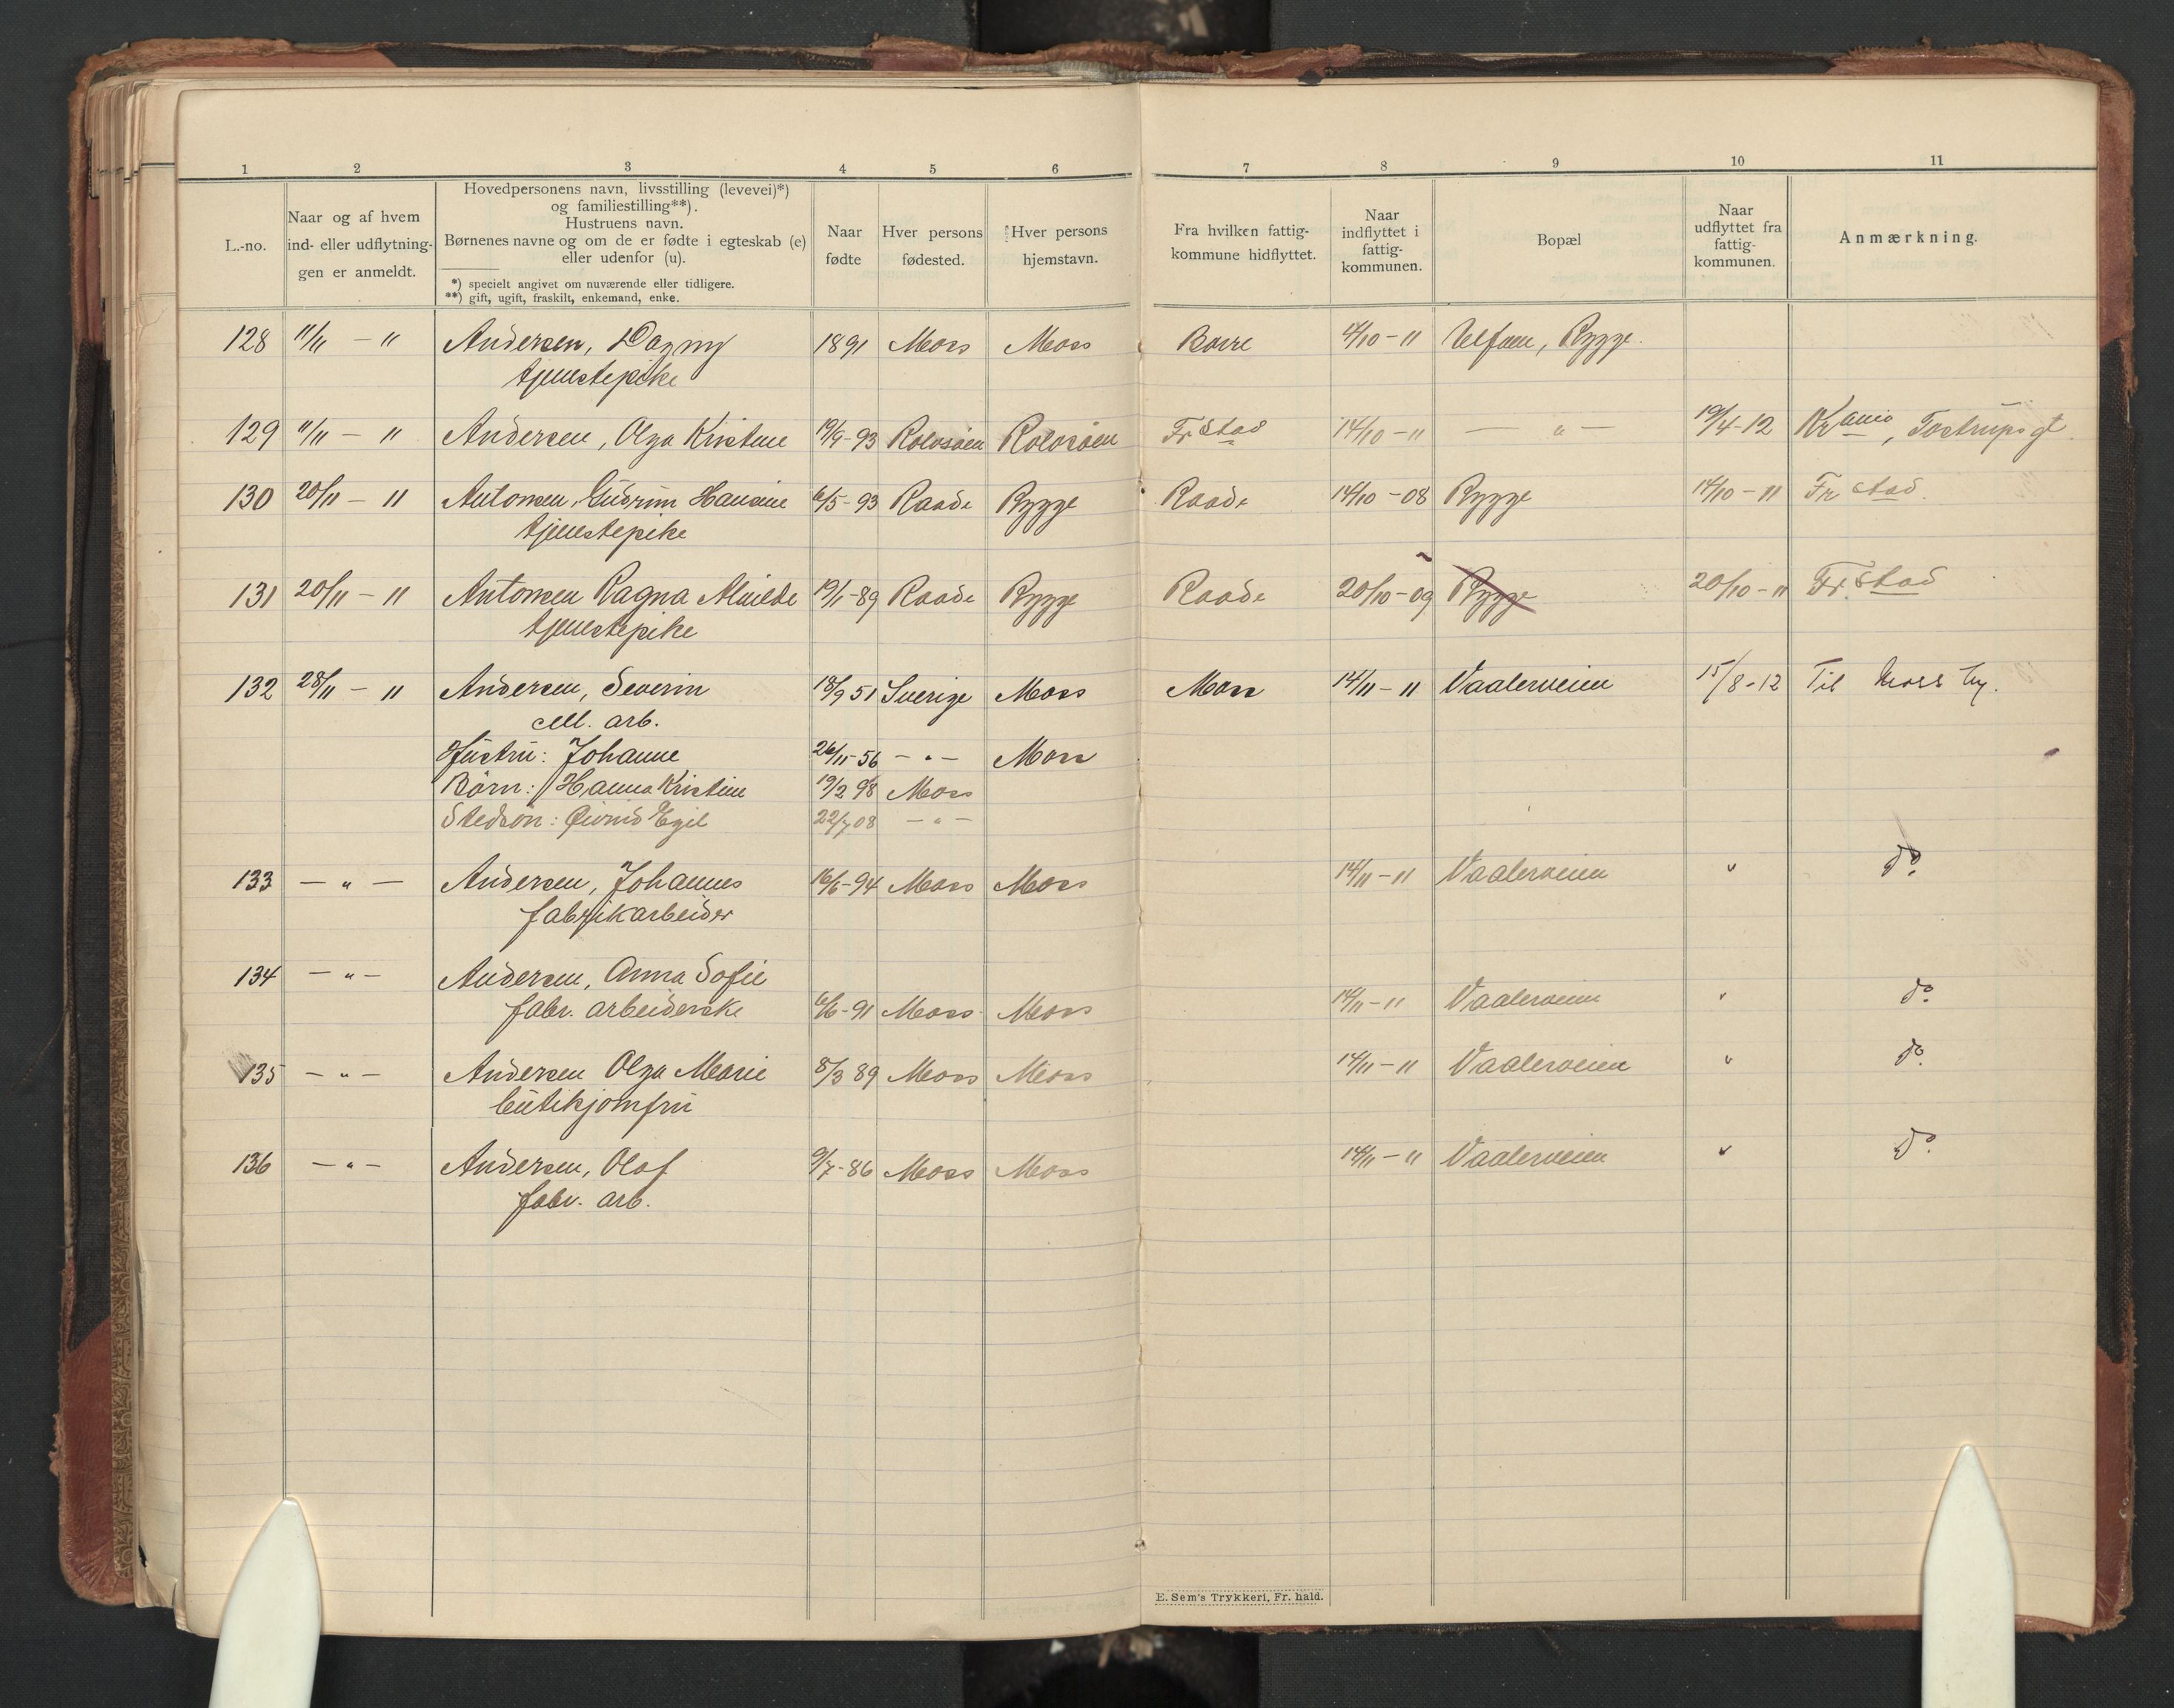 1 2 3 4 5 6 7 8 9 10 11
L.-no.
Naar og af hvem
ind- eller udflytnin-
gen er anmeldt.
Hovedpersonens navn, livsstilling (levevei)*)
og familiestilling**).
Hustruens navn.
Børnenes navne og om de er fødte i egteskab (e)
eller udenfor (u).
*) specielt angivet om nuværende eller tidligere.
**) gift, ugift, fraskilt, enkemand, enke.
Naar
fødte
Hver persons
fødested.
Hver persons
hjemstavn.
Fra hvilken fattig-
kommune hidflyttet.
Naar
indflyttet i
fattig-
kommunen.
Bopæl
Naar
udflyttet fra
fattig-
kommunen.
Anmærkning.
128 11/11 – 11 Andersen, Dagny 1891 Moss Moss Borre 14/10 – 11 Rygge.
tjenestepike
129 11/11 – 11 Andersen, Olga Kristine 19/9 - 93 Rolvsøen Rolvsøen Frstad 14/10 – 11 — " — 19/4-12 Krania, Tostrupsgt.
130 20/11 – 11 Antonsen, Gudrun Hansine 6/5 - 93 Raade Rygge Raade 14/10 – 08 Rygge 14/10 – 11 Frstad.
tjenestepike
131 20/11 – 11 Antonsen Ragna Alvilde 19/1 - 89 Raade Rygge Raade 20/10 – 09 Rygge 20/10 – 11 Fr.stad
tjenestepike
132 28/11 – 11 Andersen, Severin 18/9 51 Sverige Moss Moss 14/11 – 11 Vaalerveien 15/8-12 Til Moss by.
M. arb.
Hustru: Johanne 26/11 - 56 – " – Moss
Børn: Hanna Kristine 19/2 98 Moss
Stedsøn: Øivind Egil 22/7 08 – " –
133 — " — Andersen, Johannes 16/6 - 94 Moss Moss 14/11 – 11 Vaalerveien " do.
fabrikarbeider
134 – " – Andersen, Anna Sofie
fabr. arbeiderske 6/6 - 91 Moss Moss 14/11 – 11 Vaalerveien " do.
135 – " – Andersen Olga Marie 8/3 89 Moss Moss 14/11 – 11 Vaalerveien " do.
butikjomfru
136 – " – Andersen, Olaf 9/7 - 86 Moss Moss 14/11 – 11 Vaalerveien " do.
fabr. arb.
E. Sem's Trykkeri, Fr. hald.